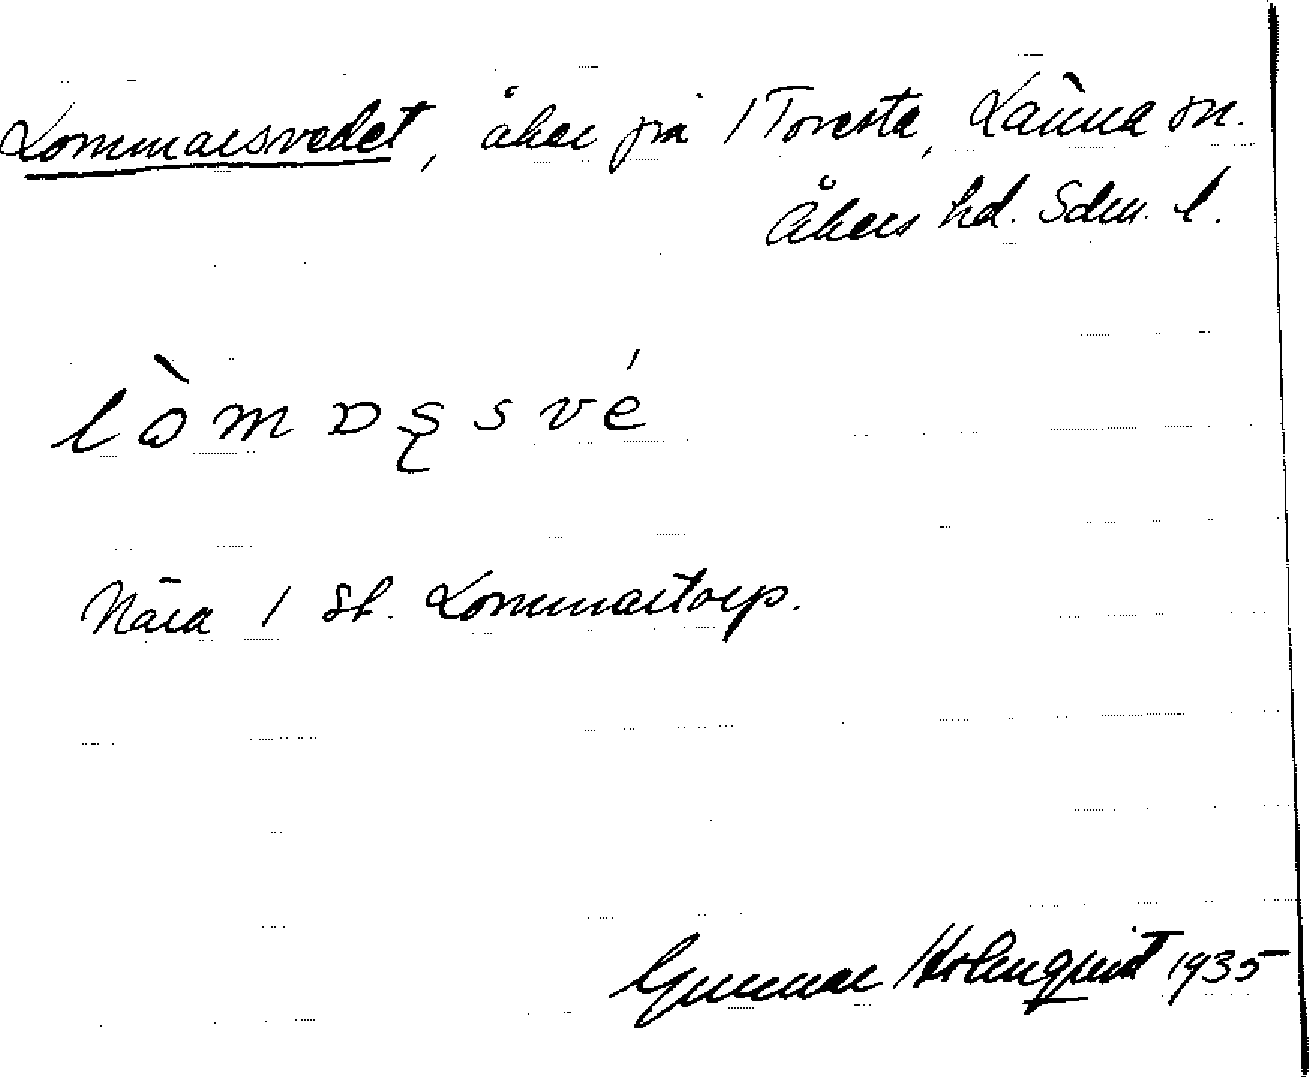 Lommarsvedet, åker på / Toresta, Länna sn.
Åkers hd. Sdm. l.
Nära / St. Lommartorp.
Gunnar Holmquist 1935